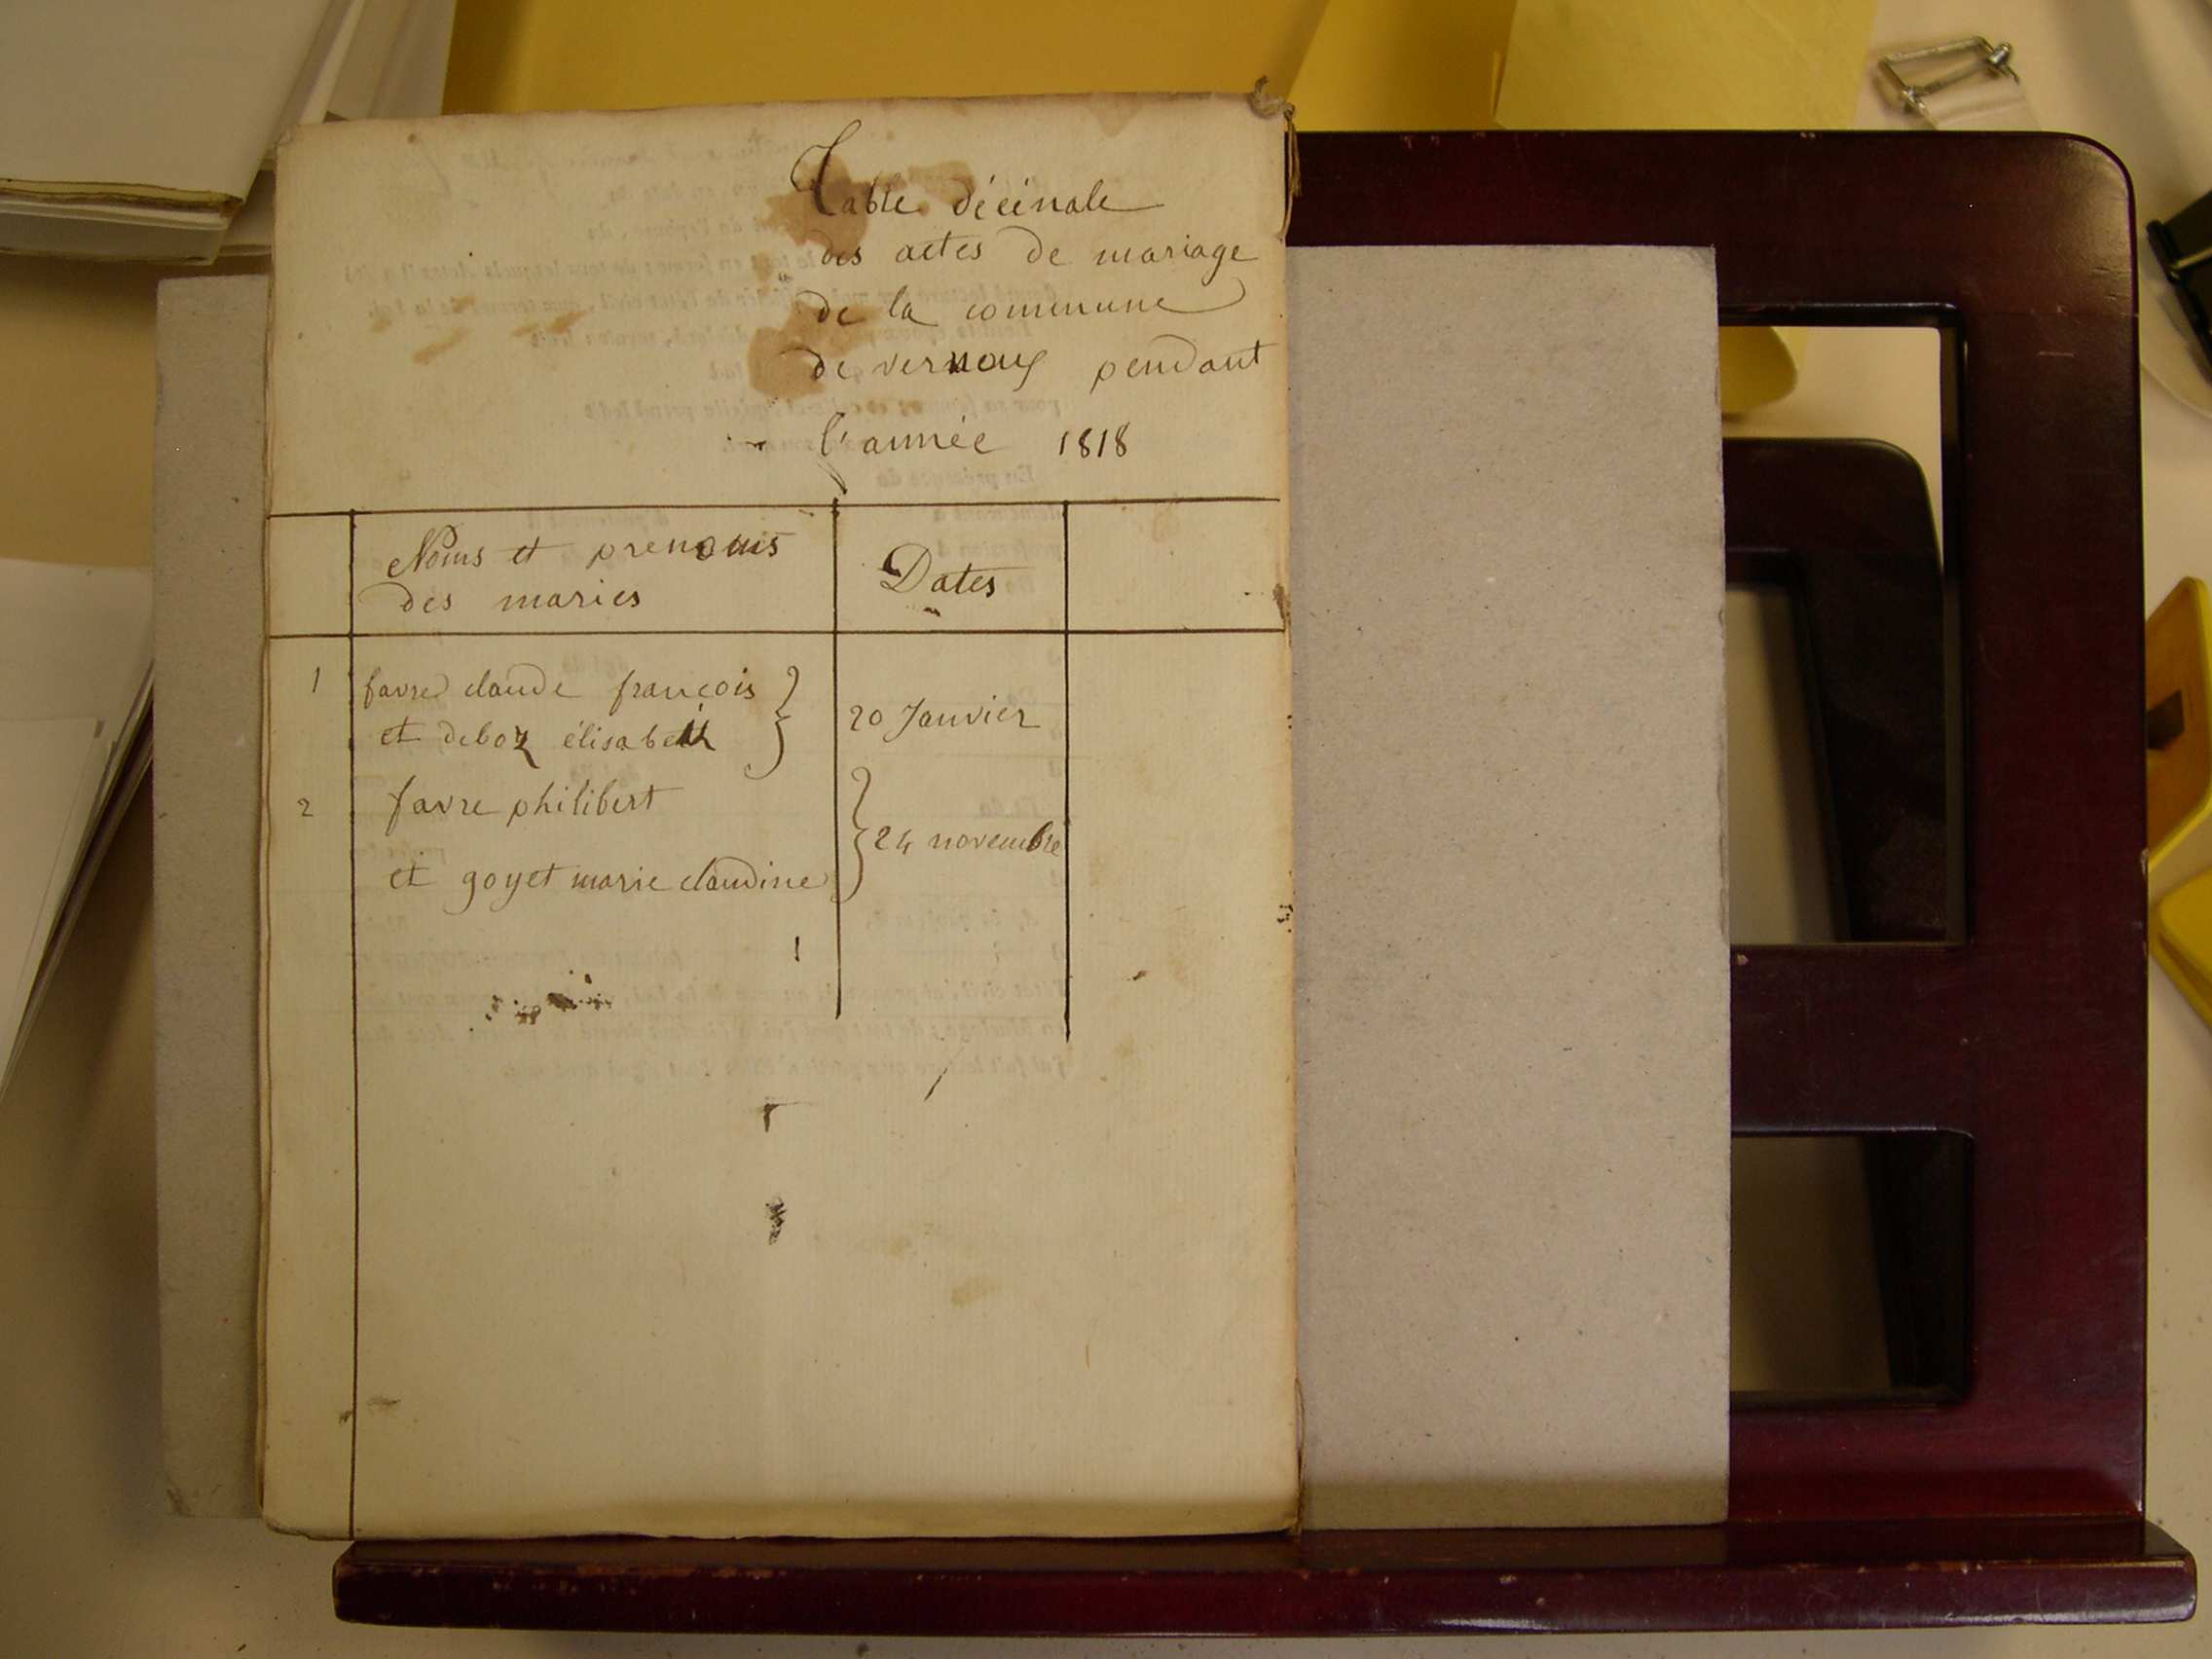 Table décénale
des actes de mariage
de la commune
de vernoux pendant
l'année 1818
Noms et prenoms
des maries
Dates
1 favre claude françois
et deboz élisabeth
20 Janvier
2 favre philibert
et goyet marie claudine
24 novembre